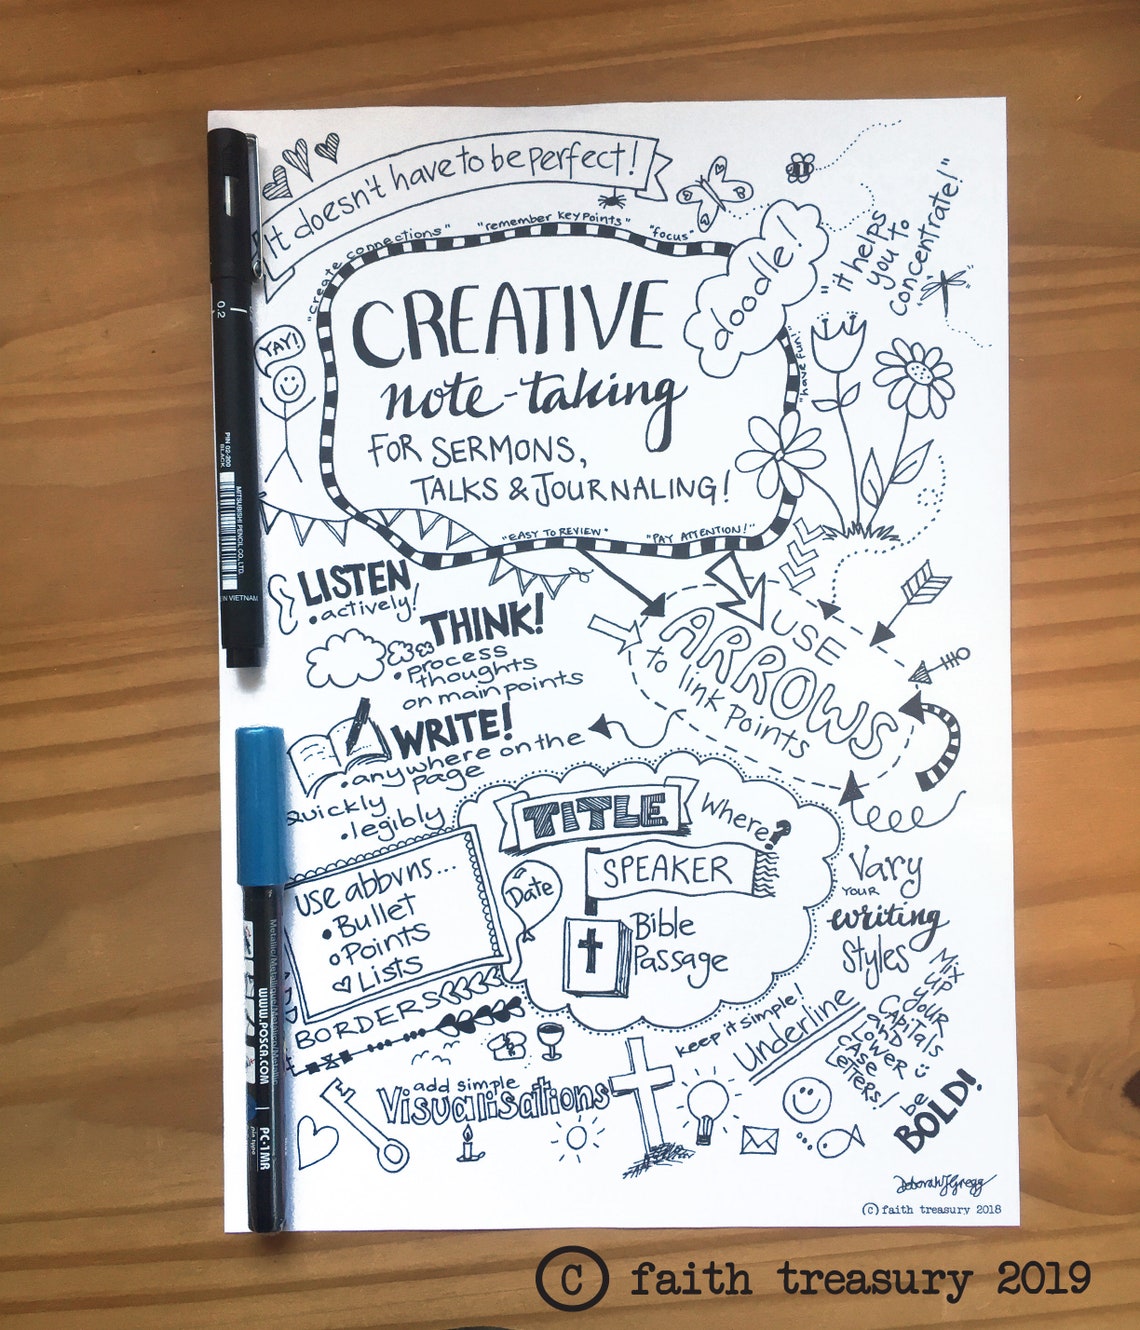 It doesn't have to be perfect!
"create connections"
"remember key points"
"focus"
doodle!
"it helps
you to
concentrate!"
"have fun!"
YAY!
CREATIVE
note-taking
FOR SERMONS,
TALKS & JOURNALING!
"EASY TO REVIEW"
"PAY ATTENTION!"
LISTEN
• actively!
THINK!
• process
thoughts
on main points
WRITE!
• anywhere on the
page
Quickly
• legibly
USE
ARROWS
to link points
TITLE
Where?
SPEAKER
Date
Bible
Passage
use abbvns...
• Bullet
o Points
♡ Lists
BORDERS
Vary
YOUR
writing
styles
Mix
up
your
CAPITALS
and
LOWER
CASE
LETTERS!
be
BOLD!
keep it simple!
Underline
add simple
Visualisations
Deborah J Gregg
© faith treasury 2018
0.2
PIN 02-200
BLACK
MITSUBISHI PENCIL CO., LTD.
IN VIETNAM
Metallic/Metallique/Metallic/Metallic
WWW.POSCA.COM
PC-1MR
pin type
© faith treasury 2019